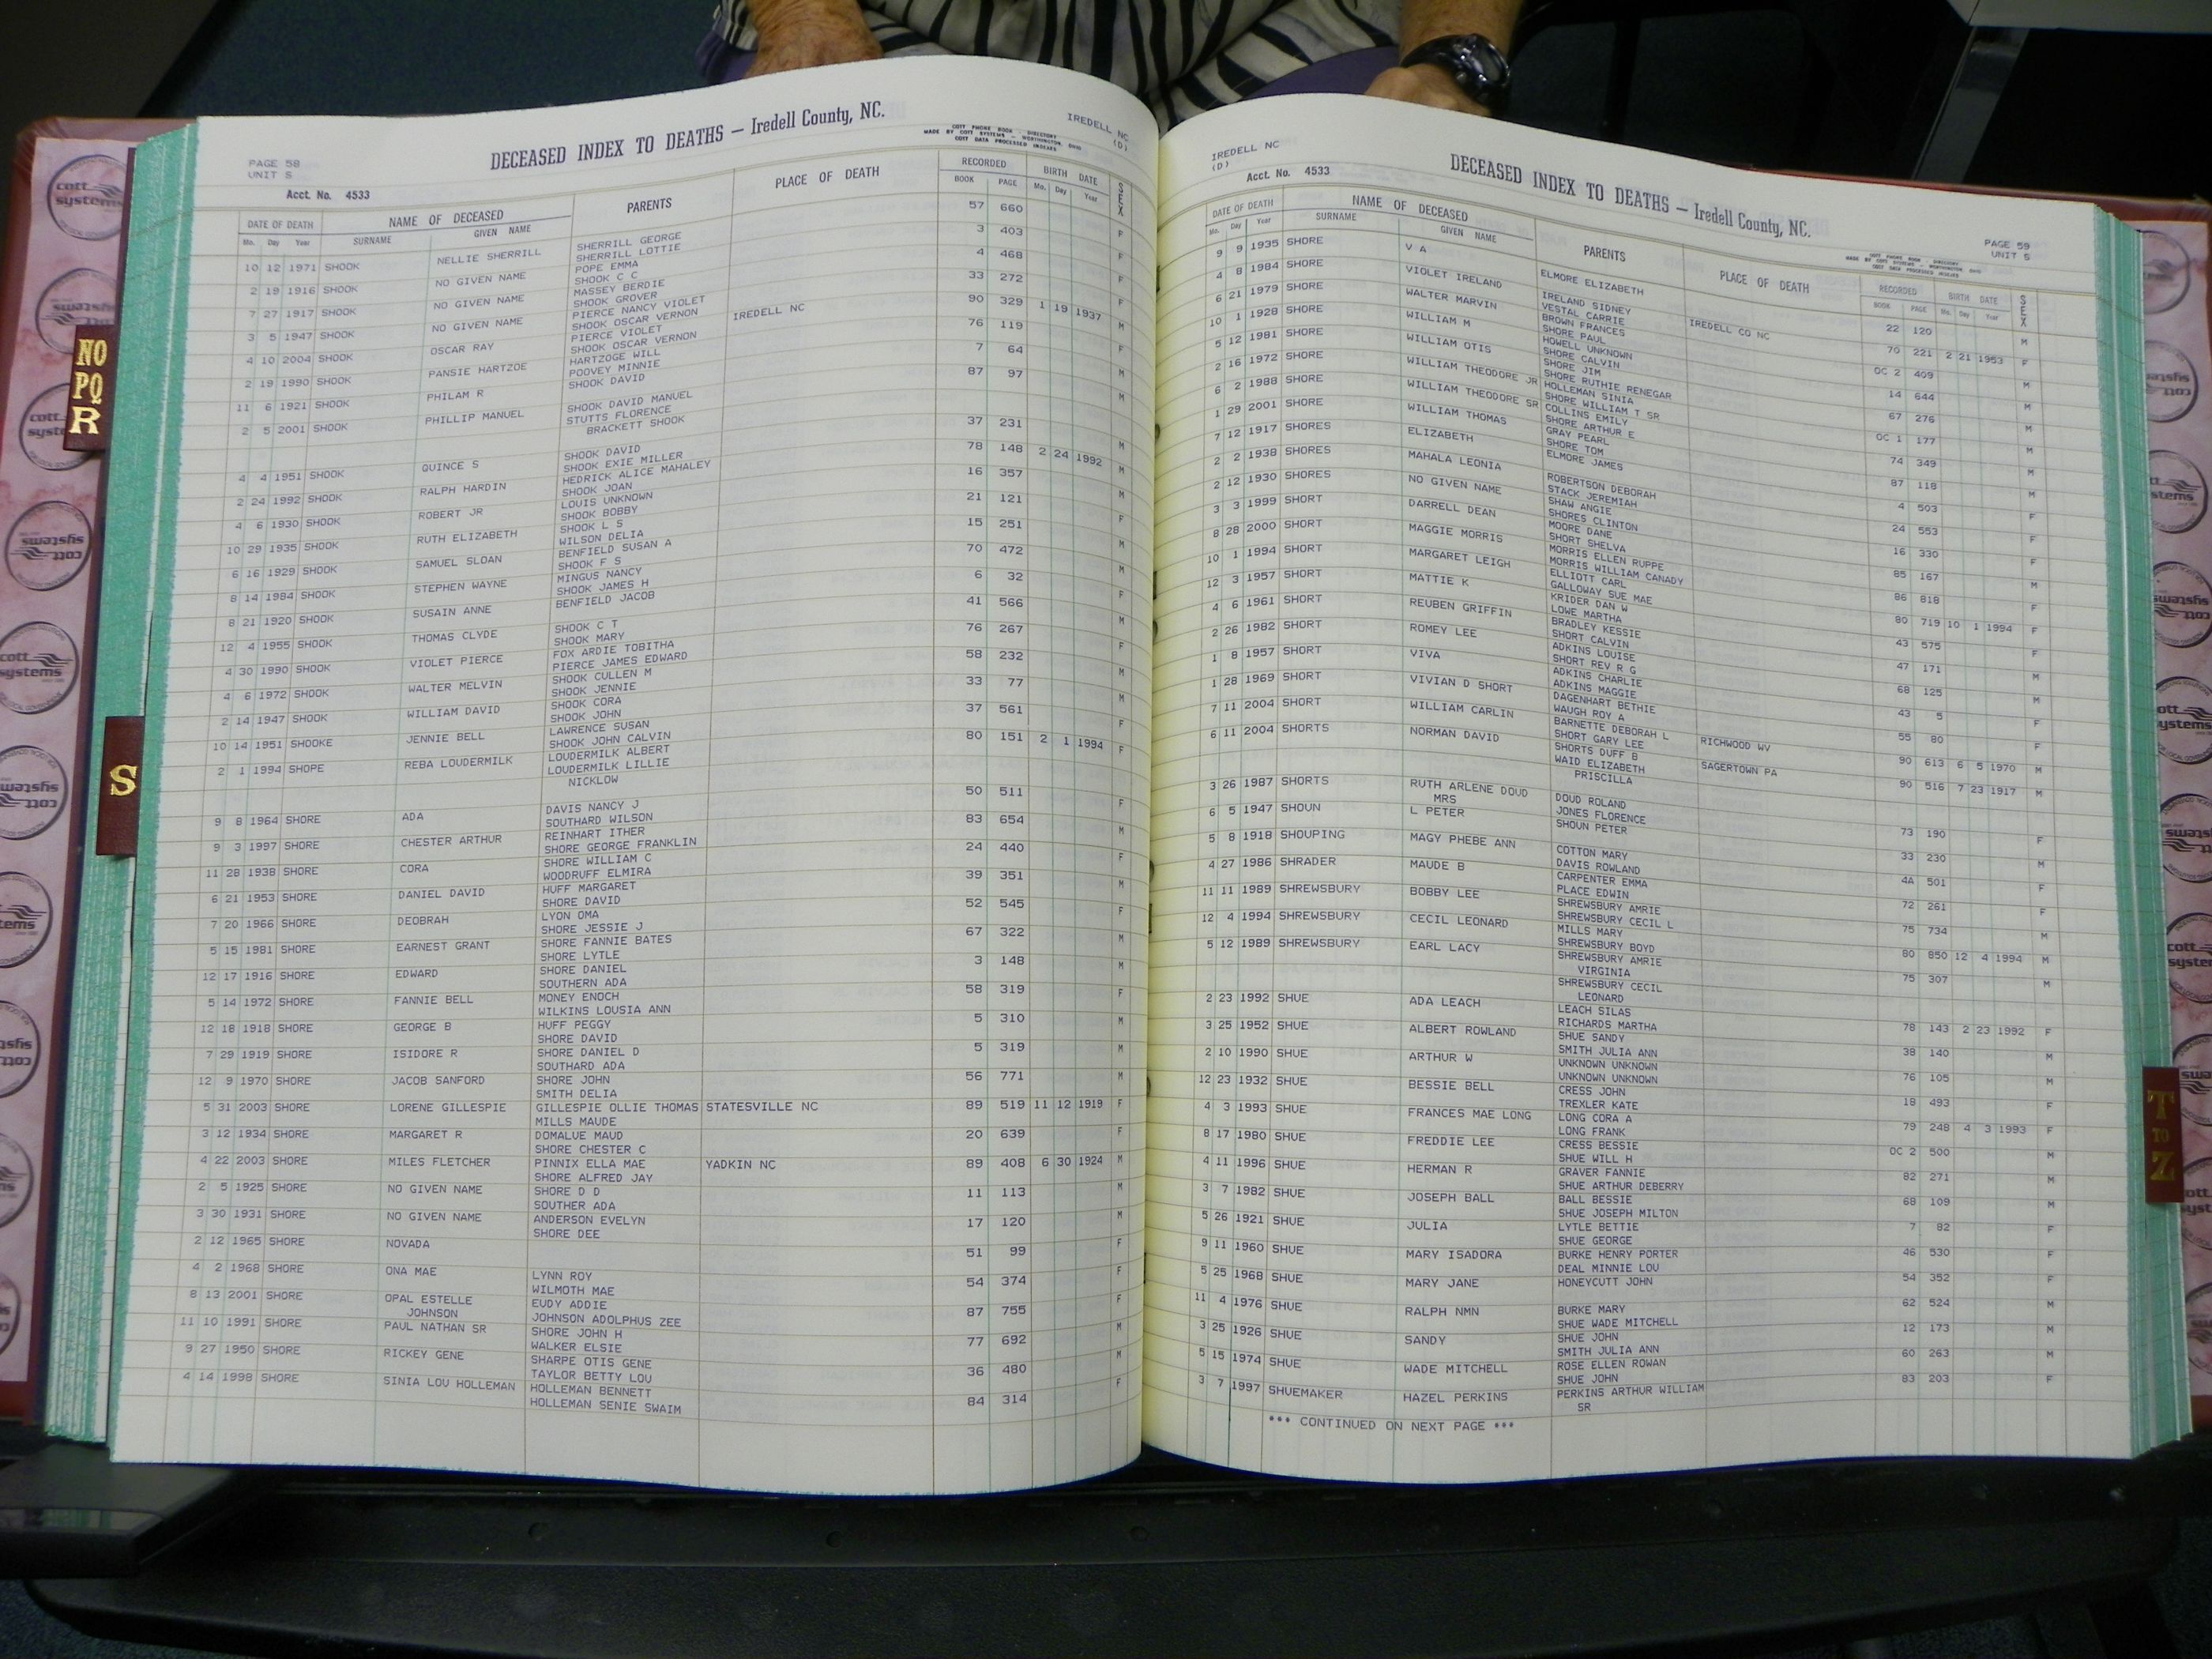 PAGE 58
UNIT S
DECEASED INDEX TO DEATHS — Iredell County, NC.
COTT PHONE BOOK - DIRECTORY
MADE BY COTT SYSTEMS - WORTHINGTON, OHIO
COTT DATA PROCESSED INDEXES
IREDELL NC
(D)
Acct. No. 4533
DATE OF DEATH NAME OF DECEASED PARENTS PLACE OF DEATH RECORDED BIRTH DATE SEX
Mo. Day Year SURNAME GIVEN NAME BOOK PAGE Mo. Day Year
10 12 1971 SHOOK NELLIE SHERRILL SHERRILL GEORGE 57 660 F
SHERRILL LOTTIE
2 19 1916 SHOOK NO GIVEN NAME POPE EMMA 3 403 F
SHOOK C C
7 27 1917 SHOOK NO GIVEN NAME MASSEY BERDIE 4 468 F
SHOOK GROVER
3 5 1947 SHOOK NO GIVEN NAME PIERCE NANCY VIOLET 33 272 F
SHOOK OSCAR VERNON
4 10 2004 SHOOK OSCAR RAY PIERCE VIOLET IREDELL NC 90 329 1 19 1937 M
SHOOK OSCAR VERNON
2 19 1990 SHOOK PANSIE HARTZOE HARTZOGE WILL 76 119 F
POOVEY MINNIE
11 6 1921 SHOOK PHILAM R SHOOK DAVID 7 64 M
2 5 2001 SHOOK PHILLIP MANUEL SHOOK DAVID MANUEL 87 97 M
STUTTS FLORENCE
BRACKETT SHOOK
4 4 1951 SHOOK QUINCE S SHOOK DAVID 37 231 M
SHOOK EXIE MILLER
2 24 1992 SHOOK RALPH HARDIN HEDRICK ALICE MAHALEY 78 148 2 24 1992 M
SHOOK JOAN
4 6 1930 SHOOK ROBERT JR LOUIS UNKNOWN 16 357 M
SHOOK BOBBY
10 29 1935 SHOOK RUTH ELIZABETH SHOOK L S 21 121 F
WILSON DELIA
6 16 1929 SHOOK SAMUEL SLOAN BENFIELD SUSAN A 15 251 M
SHOOK F S
8 14 1984 SHOOK STEPHEN WAYNE MINGUS NANCY 70 472 M
SHOOK JAMES H
8 21 1920 SHOOK SUSAIN ANNE BENFIELD JACOB 6 32 F
12 4 1955 SHOOK THOMAS CLYDE SHOOK C T 41 566 M
SHOOK MARY
4 30 1990 SHOOK VIOLET PIERCE FOX ARDIE TOBITHA 76 267 F
PIERCE JAMES EDWARD
4 6 1972 SHOOK WALTER MELVIN SHOOK CULLEN M 58 232 M
SHOOK JENNIE
2 14 1947 SHOOK WILLIAM DAVID SHOOK CORA 33 77 M
SHOOK JOHN
10 14 1951 SHOOKE JENNIE BELL LAWRENCE SUSAN 37 561 F
SHOOK JOHN CALVIN
2 1 1994 SHOPE REBA LOUDERMILK LOUDERMILK ALBERT 80 151 2 1 1994 F
LOUDERMILK LILLIE
NICKLOW
9 8 1964 SHORE ADA DAVIS NANCY J 50 511 F
SOUTHARD WILSON
9 3 1997 SHORE CHESTER ARTHUR REINHART ITHER 83 654 M
SHORE GEORGE FRANKLIN
11 28 1938 SHORE CORA SHORE WILLIAM C 24 440 F
WOODRUFF ELMIRA
6 21 1953 SHORE DANIEL DAVID HUFF MARGARET 39 351 M
SHORE DAVID
7 20 1966 SHORE DEOBRAH LYON OMA 52 545 F
SHORE JESSIE J
5 15 1981 SHORE EARNEST GRANT SHORE FANNIE BATES 67 322 M
SHORE LYTLE
12 17 1916 SHORE EDWARD SHORE DANIEL 3 148 M
SOUTHERN ADA
5 14 1972 SHORE FANNIE BELL MONEY ENOCH 58 319 F
WILKINS LOUSIA ANN
12 18 1918 SHORE GEORGE B HUFF PEGGY 5 310 M
SHORE DAVID
7 29 1919 SHORE ISIDORE R SHORE DANIEL D 5 319 M
SOUTHARD ADA
12 9 1970 SHORE JACOB SANFORD SHORE JOHN 56 771 M
SMITH DELIA
5 31 2003 SHORE LORENE GILLESPIE GILLESPIE OLLIE THOMAS STATESVILLE NC 89 519 11 12 1919 F
MILLS MAUDE
3 12 1934 SHORE MARGARET R DOMALUE MAUD 20 639 F
SHORE CHESTER C
4 22 2003 SHORE MILES FLETCHER PINNIX ELLA MAE YADKIN NC 89 408 6 30 1924 M
SHORE ALFRED JAY
2 5 1925 SHORE NO GIVEN NAME SHORE D D 11 113 M
SOUTHER ADA
3 30 1931 SHORE NO GIVEN NAME ANDERSON EVELYN 17 120 M
SHORE DEE
2 12 1965 SHORE NOVADA 51 99 F
4 2 1968 SHORE ONA MAE LYNN ROY 54 374 F
WILMOTH MAE
8 13 2001 SHORE OPAL ESTELLE EUDY ADDIE 87 755 F
JOHNSON JOHNSON ADOLPHUS ZEE
11 10 1991 SHORE PAUL NATHAN SR SHORE JOHN H 77 692 M
WALKER ELSIE
9 27 1950 SHORE RICKEY GENE SHARPE OTIS GENE 36 480 M
TAYLOR BETTY LOU
4 14 1998 SHORE SINIA LOU HOLLEMAN HOLLEMAN BENNETT 84 314 F
HOLLEMAN SENIE SWAIM
IREDELL NC
(D)
Acct. No. 4533
DECEASED INDEX TO DEATHS — Iredell County, NC.
COTT PHONE BOOK - DIRECTORY
MADE BY COTT SYSTEMS - WORTHINGTON, OHIO
COTT DATA PROCESSED INDEXES
PAGE 59
UNIT S
DATE OF DEATH NAME OF DECEASED PARENTS PLACE OF DEATH RECORDED BIRTH DATE SEX
Mo. Day Year SURNAME GIVEN NAME BOOK PAGE Mo. Day Year
9 9 1935 SHORE V A ELMORE ELIZABETH IREDELL CO NC 22 120 M
4 8 1984 SHORE VIOLET IRELAND IRELAND SIDNEY 70 221 2 21 1953 F
VESTAL CARRIE
6 21 1979 SHORE WALTER MARVIN BROWN FRANCES OC 2 409 M
SHORE PAUL
10 1 1928 SHORE WILLIAM M HOWELL UNKNOWN 14 644 M
SHORE CALVIN
5 12 1981 SHORE WILLIAM OTIS SHORE JIM 67 276 M
SHORE RUTHIE RENEGAR
2 16 1972 SHORE WILLIAM THEODORE JR HOLLEMAN SINIA OC 1 177 M
SHORE WILLIAM T SR
6 2 1988 SHORE WILLIAM THEODORE SR COLLINS EMILY 74 349 M
SHORE ARTHUR E
1 29 2001 SHORE WILLIAM THOMAS GRAY PEARL 87 118 M
SHORE TOM
7 12 1917 SHORES ELIZABETH ELMORE JAMES 4 503 F
2 2 1938 SHORES MAHALA LEONIA ROBERTSON DEBORAH 24 553 F
STACK JEREMIAH
2 12 1930 SHORES NO GIVEN NAME SHAW ANGIE 16 330 F
SHORES CLINTON
3 3 1999 SHORT DARRELL DEAN MOORE DANE 85 167 M
SHORT SHELVA
8 28 2000 SHORT MAGGIE MORRIS MORRIS ELLEN RUPPE 86 818 F
MORRIS WILLIAM CANADY
10 1 1994 SHORT MARGARET LEIGH ELLIOTT CARL 80 719 10 1 1994 F
GALLOWAY SUE MAE
12 3 1957 SHORT MATTIE K KRIDER DAN W 43 575 F
LOWE MARTHA
4 6 1961 SHORT REUBEN GRIFFIN BRADLEY KESSIE 47 171 M
SHORT CALVIN
2 26 1982 SHORT ROMEY LEE ADKINS LOUISE 68 125 M
SHORT REV R G
1 8 1957 SHORT VIVA ADKINS CHARLIE 43 5 F
ADKINS MAGGIE
1 28 1969 SHORT VIVIAN D SHORT DAGENHART BETHIE 55 80 F
WAUGH ROY A
7 11 2004 SHORT WILLIAM CARLIN BARNETTE DEBORAH L RICHWOOD WV 90 613 6 5 1970 M
SHORT GARY LEE
6 11 2004 SHORTS NORMAN DAVID SHORTS DUFF B SAGERTOWN PA 90 516 7 23 1917 M
WAID ELIZABETH
PRISCILLA
3 26 1987 SHORTS RUTH ARLENE DOUD DOUD ROLAND 73 190 F
MRS JONES FLORENCE
6 5 1947 SHOUN L PETER SHOUN PETER 33 230 M
5 8 1918 SHOUPING MAGY PHEBE ANN COTTON MARY 4A 501 F
DAVIS ROWLAND
4 27 1986 SHRADER MAUDE B CARPENTER EMMA 72 261 F
PLACE EDWIN
11 11 1989 SHREWSBURY BOBBY LEE SHREWSBURY AMRIE 75 734 M
SHREWSBURY CECIL L
12 4 1994 SHREWSBURY CECIL LEONARD MILLS MARY 80 850 12 4 1994 M
SHREWSBURY BOYD
5 12 1989 SHREWSBURY EARL LACY SHREWSBURY AMRIE 75 307 M
VIRGINIA
SHREWSBURY CECIL
LEONARD
2 23 1992 SHUE ADA LEACH LEACH SILAS 78 143 2 23 1992 F
RICHARDS MARTHA
3 25 1952 SHUE ALBERT ROWLAND SHUE SANDY 38 140 M
SMITH JULIA ANN
2 10 1990 SHUE ARTHUR W UNKNOWN UNKNOWN 76 105 M
UNKNOWN UNKNOWN
12 23 1932 SHUE BESSIE BELL CRESS JOHN 18 493 F
TREXLER KATE
4 3 1993 SHUE FRANCES MAE LONG LONG CORA A 79 248 4 3 1993 F
LONG FRANK
8 17 1980 SHUE FREDDIE LEE CRESS BESSIE OC 2 500 M
SHUE WILL H
4 11 1996 SHUE HERMAN R GRAVER FANNIE 82 271 M
SHUE ARTHUR DEBERRY
3 7 1982 SHUE JOSEPH BALL BALL BESSIE 68 109 M
SHUE JOSEPH MILTON
5 26 1921 SHUE JULIA LYTLE BETTIE 7 82 F
SHUE GEORGE
9 11 1960 SHUE MARY ISADORA BURKE HENRY PORTER 46 530 F
DEAL MINNIE LOU
5 25 1968 SHUE MARY JANE HONEYCUTT JOHN 54 352 F
11 4 1976 SHUE RALPH NMN BURKE MARY 62 524 M
SHUE WADE MITCHELL
3 25 1926 SHUE SANDY SHUE JOHN 12 173 M
SMITH JULIA ANN
5 15 1974 SHUE WADE MITCHELL ROSE ELLEN ROWAN 60 263 M
SHUE JOHN
3 7 1997 SHUEMAKER HAZEL PERKINS PERKINS ARTHUR WILLIAM 83 203 F
SR
*** CONTINUED ON NEXT PAGE ***
NO
PQ
R
S
T
TO
Z
cott
systems